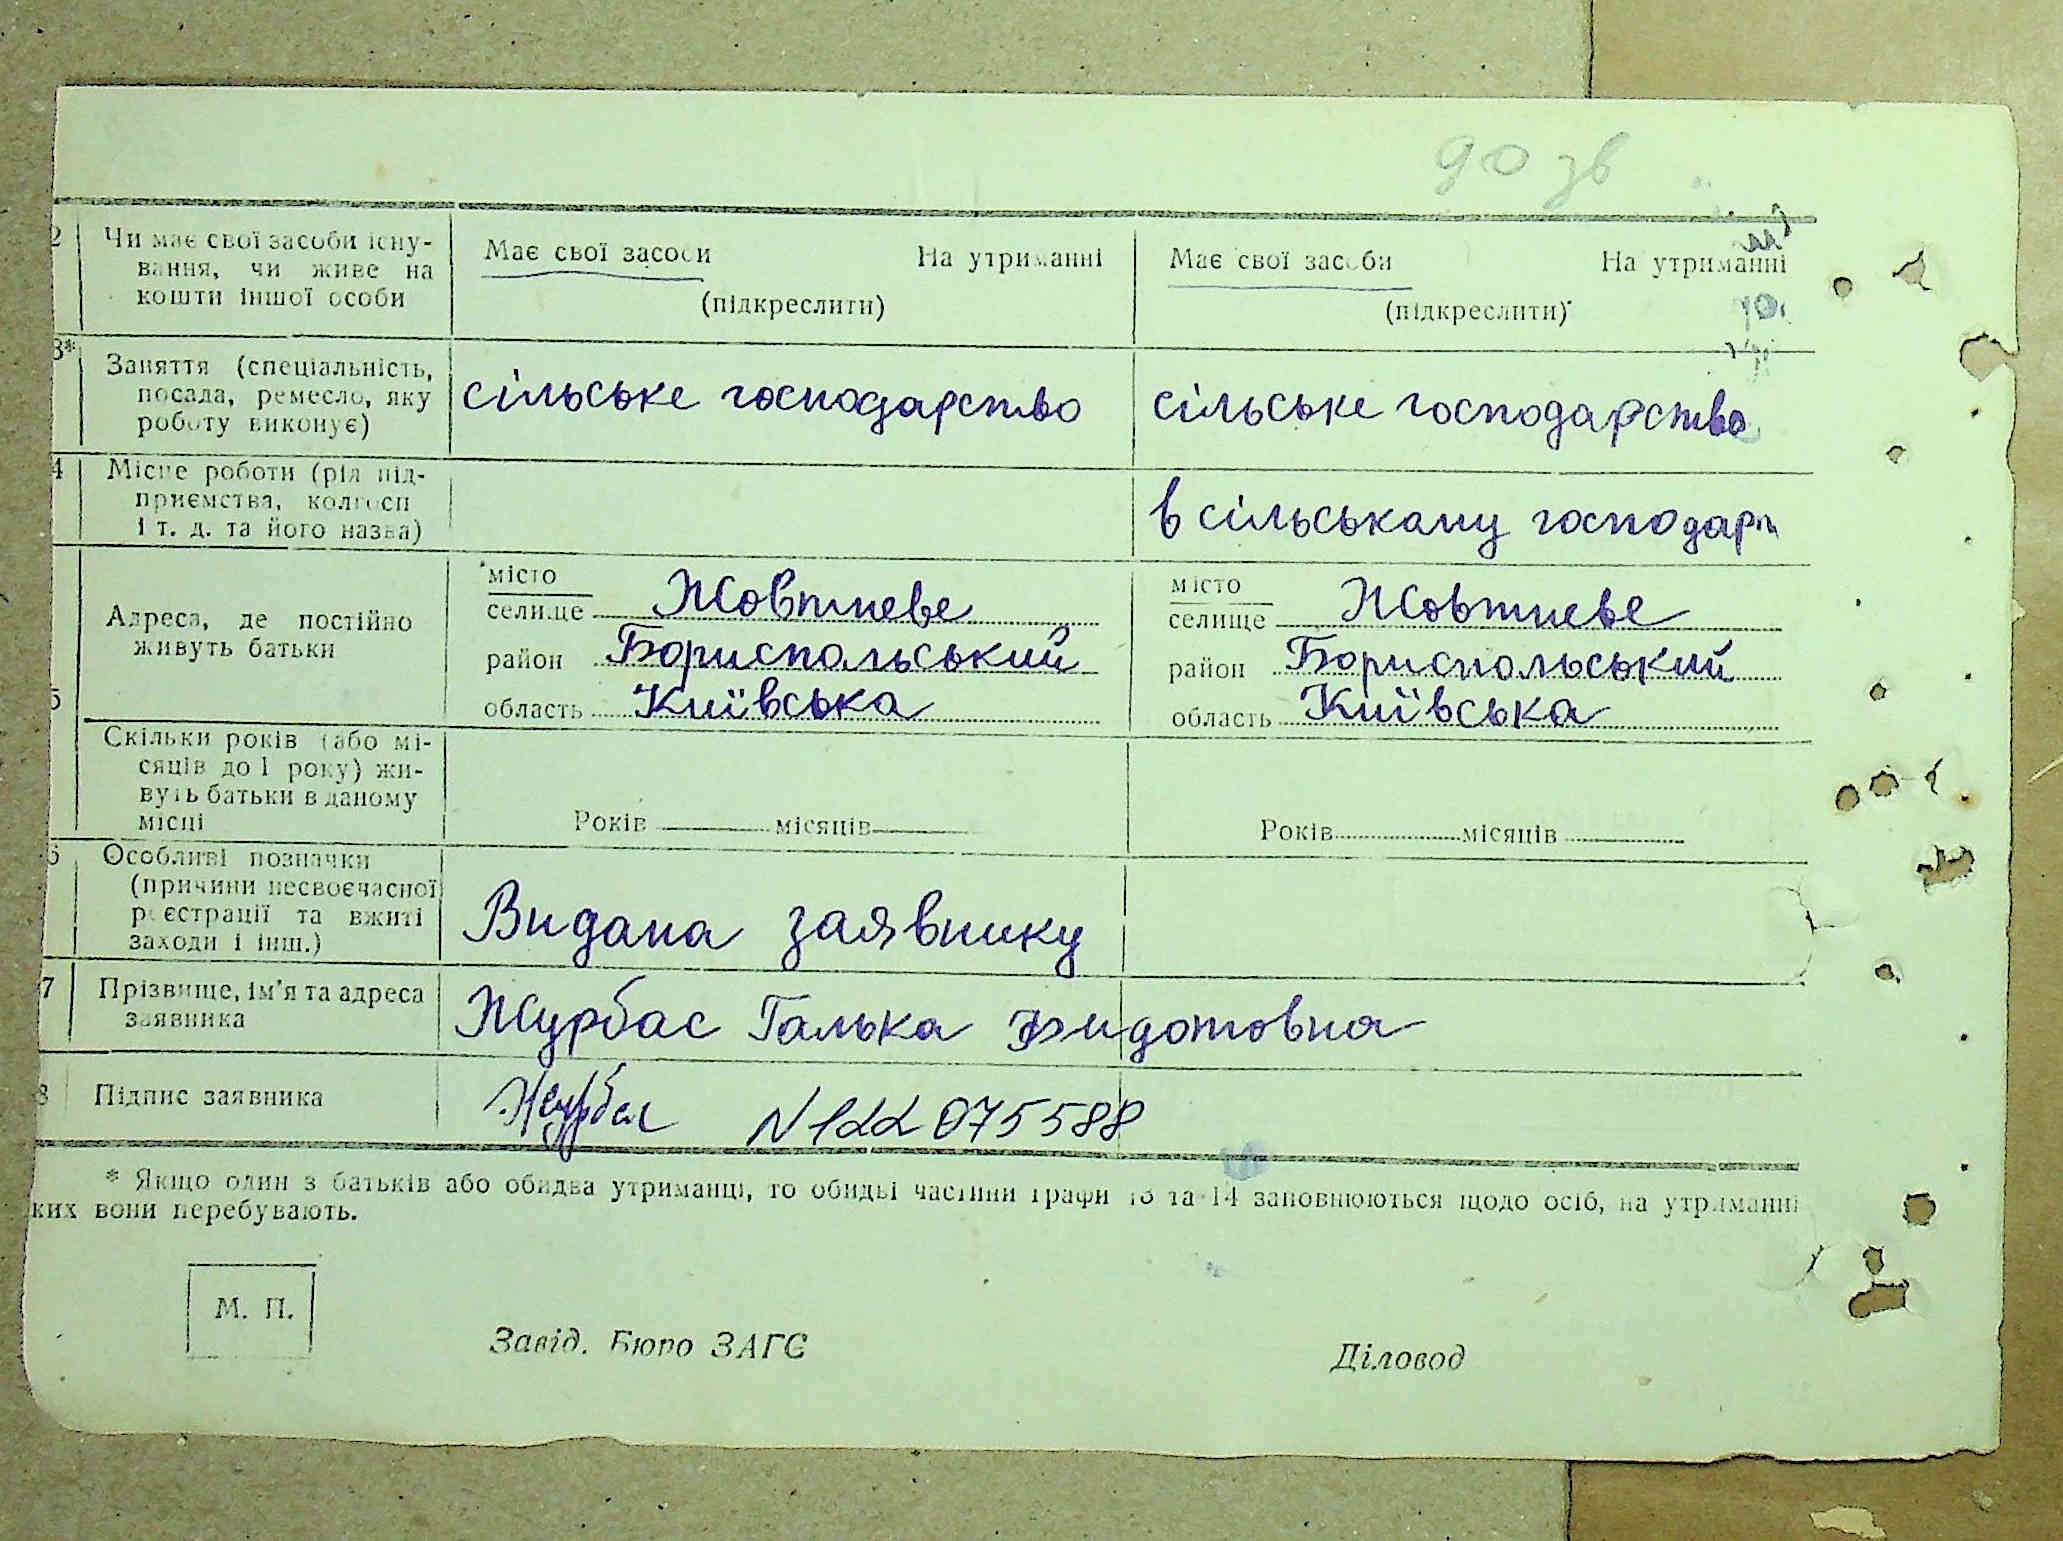 90 зв
2 Чи має свої засоби існу-
вання, чи живе на
кошти іншої особи
Має свої засоби На утриманні
(підкреслити)
Має свої засоби На утриманні
(підкреслити)
3* Заняття (спеціальність,
посада, ремесло, яку
роботу виконує)
сільське господарство
сільське господарство
4 Місце роботи (рід під-
приємства, колгосп
і т. д. та його назва)
в сільському господарт
5 Адреса, де постійно
живуть батьки
місто
селище Жовтневе
район Бориспольський
область Київська
місто
селище Жовтневе
район Бориспольський
область Київська
Скільки років (або мі-
сяців до 1 року) жи-
вуть батьки в даному
місці
Років місяців
Років місяців
6 Особливі позначки
(причини несвоєчасної
реєстрації та вжиті
заходи і інш.)
Видана заявнику
7 Прізвище, ім'я та адреса
заявника
Журбас Галька Фидотовна
8 Підпис заявника
Журбас N 122 075588
* Якщо один з батьків або обидва утриманці, то обидві частини графи 13 та 14 заповнюються щодо осіб, на утриманні
ких вони перебувають.
М. П.
Завід. Бюро ЗАГС
Діловод